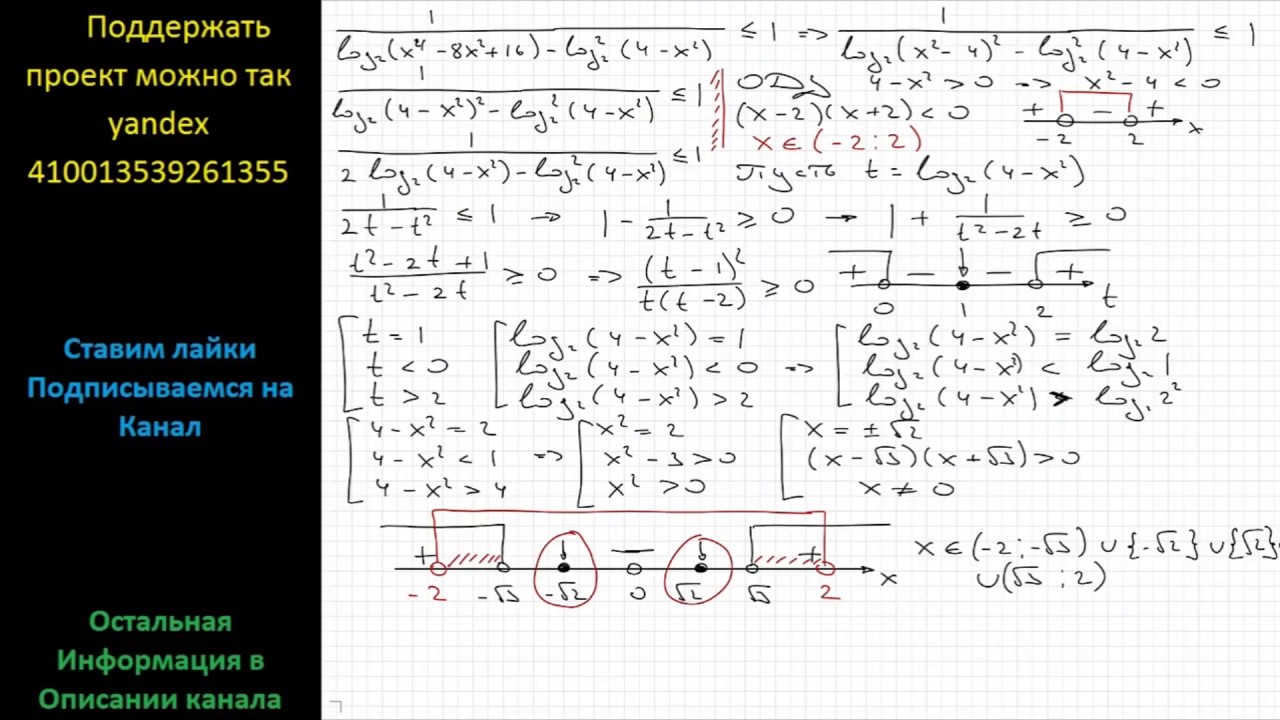 Поддержать
проект можно так
yandex
410013539261355
Ставим лайки
Подписываемся на
Канал
Остальная
Информация в
Описании канала
1/(log₂(x⁴ - 8x² + 16) - log₂²(4 - x²)) ≤ 1 => 1/(log₂(x² - 4)² - log₂²(4 - x²)) ≤ 1
1/(log₂(4 - x²)² - log₂²(4 - x²)) ≤ 1
ОДЗ 4 - x² > 0 => x² - 4 < 0
(x - 2)(x + 2) < 0
+ - +
-2 2 x
x ∈ (-2 ; 2)
1/(2 log₂(4 - x²) - log₂²(4 - x²)) ≤ 1
Пусть t = log₂(4 - x²)
1/(2t - t²) ≤ 1 → 1 - 1/(2t - t²) ≥ 0 → 1 + 1/(t² - 2t) ≥ 0
(t² - 2t + 1)/(t² - 2t) ≥ 0 => (t - 1)²/(t(t - 2)) ≥ 0
+ - - +
0 1 2 t
[ t = 1 [ log₂(4 - x²) = 1 [ log₂(4 - x²) = log₂2
t < 0 log₂(4 - x²) < 0 => log₂(4 - x²) < log₂1
t > 2 log₂(4 - x²) > 2 log₂(4 - x²) > log₂2²
[ 4 - x² = 2 [ x² = 2 [ x = ± √2
4 - x² < 1 => x² - 3 > 0 (x - √3)(x + √3) > 0
4 - x² > 4 x² > 0 x ≠ 0
+ - +
-2 -√3 -√2 0 √2 √3 2 x
x ∈ (-2 ; -√3) ∪ {-√2} ∪ {√2} ∪
∪ (√3 ; 2)